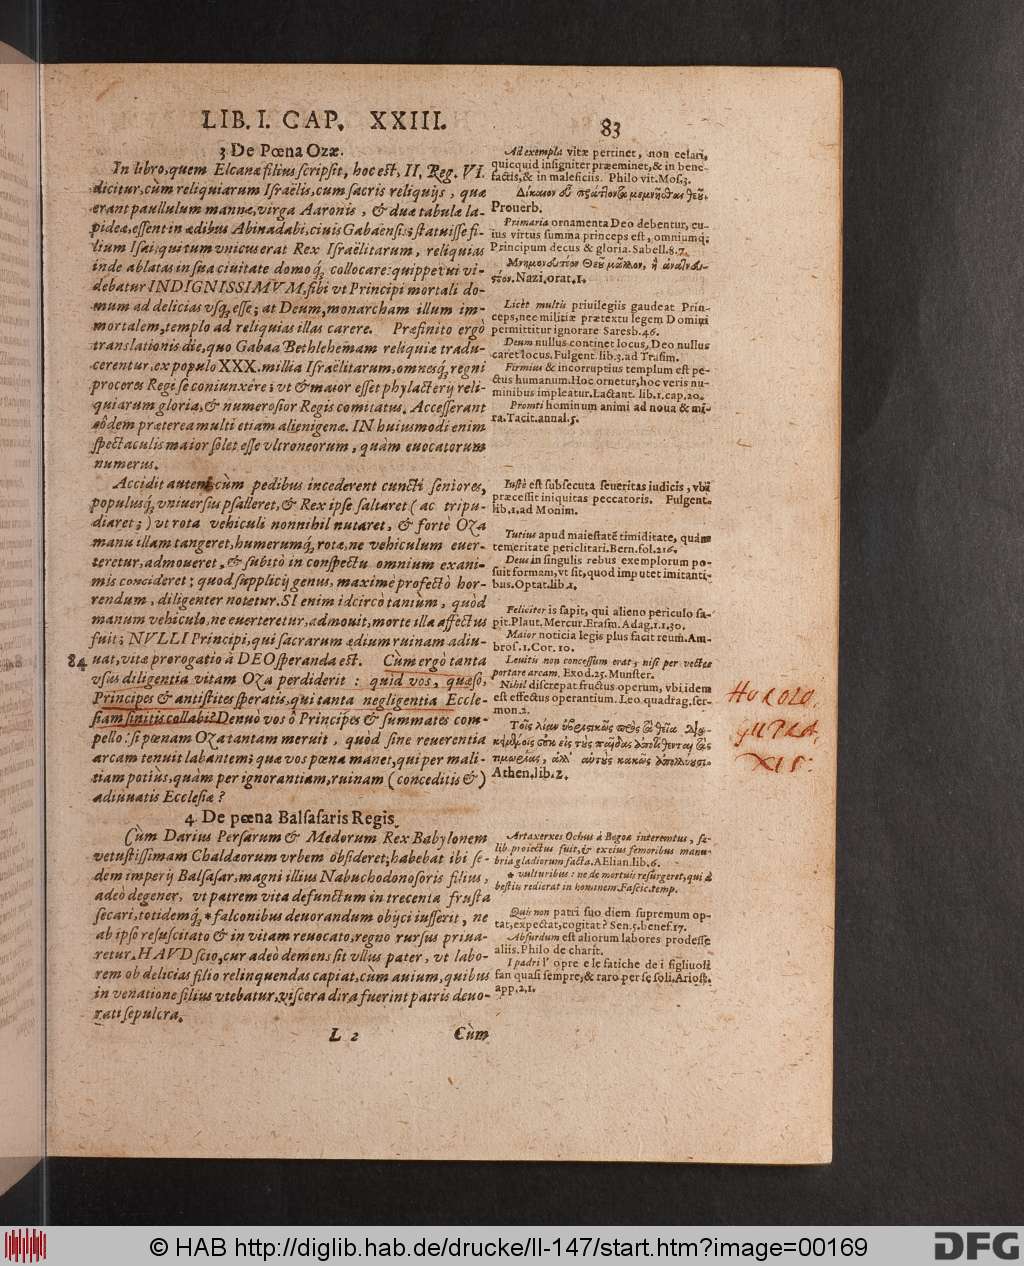 LIB. I. CAP. XXIII. 83
3 De Pœna Ozæ.
In libro, quem Elcanæ filius scripsit, hoc est, II, Reg. VI.
dicitur, cùm reliquiarum Israëlis, cum sacris reliquijs, quæ
erant paullulum mannæ, virga Aaronis, & duæ tabulæ la-
pideæ, essent in ædibus Abinadabi, civis Gabaensis; statuisse fi-
lium Isai, qui tum vnicus erat Rex Israëlitarum, reliquias
inde ablatas in sua ciuitate domoq́; collocare: quippe rui vi-
debatur INDIGNISSIMVM, sibi vt Principi mortali do-
mum ad delicias vsq́; esse; at Deum, monarcham illum im-
mortalem, templo ad reliquias illas carere. Præfinito ergò
translationis die, quo Gabaa Bethlehemam reliquiæ tradu-
cerentur, ex populo XXX. millia Israëlitarum, omnesq́; regni
proceres Regi se coniunxère; vt & maior esset phylacterij reli-
quiarum gloria, & numerosior Regis comitatus. Accesserant
eôdem præterea multi etiam alienigenæ. IN huiusmodi enim
spectaculis maior solet esse vltroneorum, quàm euocatorum
numerus.
Accidit autem cùm pedibus incederent cuncti seniores,
populusq́; vniuersus psalleret, & Rex ipse saltaret (ac tripu-
diaret;) vt rota vehiculi nonnihil nutaret, & fortè Oza
manu illam tangeret, humerumq́; rotæ, ne vehiculum euer-
teretur, admoueret, & subitò in conspectu omnium exani-
mis concideret; quod supplicij genus, maximè profectò hor-
rendum, diligenter notetur. SI enim idcircò tantùm, quòd
manum vehiculo, ne euerteretur, admouit, morte illa affectus
fuit; NVLLI Principi, qui sacrarum ædium ruinam adiu-
84 uat, vitæ prorogatio à DEO speranda est. Cùm ergò tanta
vsus diligentia vitam Oza perdiderit: quid vos, quæso,
Principes & antistites speratis, qui tanta negligentia Eccle-
siam sinitis collabi? Denuò vos ô Principes & summates com-
pello: si pœnam Oza tantam meruit, quòd sine reuerentia
arcam tenuit labantem; quæ vos pœna manet, qui per mali-
tiam potius, quàm per ignorantiam, ruinam (conceditis &)
adiuuatis Ecclesiæ?
4. De pœna Balsasaris Regis.
Cùm Darius Persarum & Medorum Rex Babylonem
vetustissimam Chaldæorum vrbem obsideret; habebat ibi se-
dem imperij Balsasar, magni illius Nabuchodonosoris filius,
adeò degener, vt patrem vita defunctum in trecenta frusta
secari, totidemq́; * falconibus deuorandum obijci iusserit, ne
ab ipso resuscitato & in vitam reuocato, regno rursus priua-
retur. HAVD scio, cur adeò demens sit vllus pater, vt labo-
rem ob delicias filio relinquendas capiat, cùm auium, quibus
in venatione filius vtebatur, viscera dira fuerint patris deuo-
rati sepulcra.
L 2 Cùm
Ad exempla vitæ pertinet, non celari,
quicquid insigniter præeminet, & in bene-
factis, & in maleficiis. Philo vit. Mos. 3.
Prouerb.
Primaria ornamenta Deo debentur, cu-
ius virtus summa princeps est, omniumq́;
Principum decus & gloria. Sabell. 8. 7.
Nazi. orat. 1.
Licèt multis priuilegiis gaudeat Prin-
ceps, nec militiæ prætextu legem Domini
permittitur ignorare Saresb. 46.
Deum nullus continet locus, Deo nullus
caret locus. Fulgent. lib. 3. ad Trasim.
Firmius & incorruptius templum est pe-
ctus humanum. Hoc ornetur, hoc veris nu-
minibus impleatur. Lactant. lib. 1. cap. 20.
Promti hominum animi ad noua & mi-
ra. Tacit. annal. 5.
Iustè est subsecuta seueritas iudicis, vbi
præcessit iniquitas peccatoris. Fulgent.
lib. 1. ad Monim.
Tutius apud maiestatē timiditate, quàm
temeritate periclitari. Bern. fol. 216.
Deus in singulis rebus exemplorum po-
suit formam, vt sit, quod imputet imitanti-
bus. Optat. lib. 1.
Feliciter is sapit, qui alieno periculo sa-
pit. Plaut. Mercur. Erasm. Adag. 1. 1. 30.
Maior noticia legis plus facit reum. Am-
bros. 1. Cor. 10.
Leuitis non concessum erat; nisi per vectes
portare arcam. Exod. 25. Munster.
Nihil discrepat fructus operum, vbi idem
est effectus operantium. Leo. quadrag. ser-
mon. 2.
Athen. lib. 2.
Artaxerxes Ochus à Bagoa interemtus, fe-
lib. proiectus fuit, & ex eius femoribus manu-
bria gladiorum facta. AElian. lib. 6.
* vulturibus: ne de mortuis resurgeret, qui à
bestiis redierat in hominem. Fascic. temp.
Quis non patri suo diem supremum op-
tat, expectat, cogitat? Sen. 5. benef. 17.
Absurdum est aliorum labores prodesse
aliis. Philo de charit.
I padri l' opre e le fatiche de i figliuoli
fan quasi sempre, & raro per se soli. Ariost.
app. 2. 1.
© HAB http://diglib.hab.de/drucke/ll-147/start.htm?image=00169 DFG